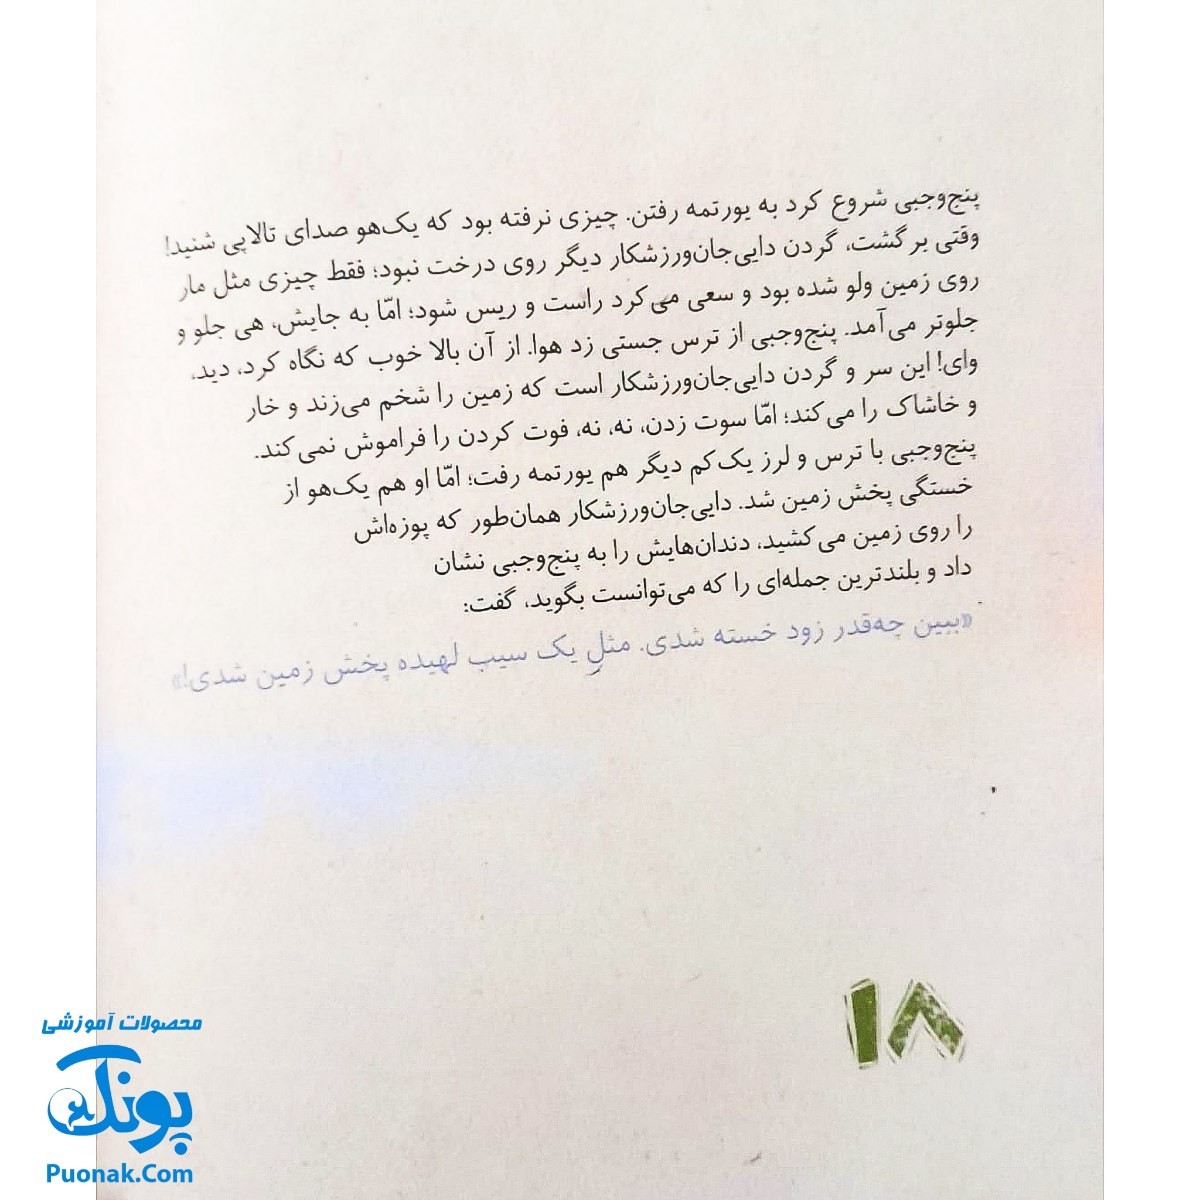 پنج‌وجبی شروع کرد به یورتمه رفتن. چیزی نرفته بود که یک‌هو صدای تالاپی شنید!
وقتی برگشت، گردن دایی‌جان‌ورزشکار دیگر روی درخت نبود؛ فقط چیزی مثل مار
روی زمین ولو شده بود و سعی می‌کرد راست و ریس شود؛ امّا به جایش، هی جلو و
جلوتر می‌آمد. پنج‌وجبی از ترس جستی زد هوا. از آن بالا خوب که نگاه کرد، دید،
وای! این سر و گردن دایی‌جان‌ورزشکار است که زمین را شخم می‌زند و خار
و خاشاک را می‌کند؛ امّا سوت زدن، نه، نه، فوت کردن را فراموش نمی‌کند.
پنج‌وجبی با ترس و لرز یک‌کم دیگر هم یورتمه رفت؛ امّا او هم یک‌هو از
خستگی پخش زمین شد. دایی‌جان‌ورزشکار همان‌طور که پوزه‌اش
را روی زمین می‌کشید، دندان‌هایش را به پنج‌وجبی نشان
داد و بلندترین جمله‌ای را که می‌توانست بگوید، گفت:
«ببین چه‌قدر زود خسته شدی. مثلِ یک سیب لهیده پخش زمین شدی!»
۱۸
محصولات آموزشی
پونک
Puonak.Com